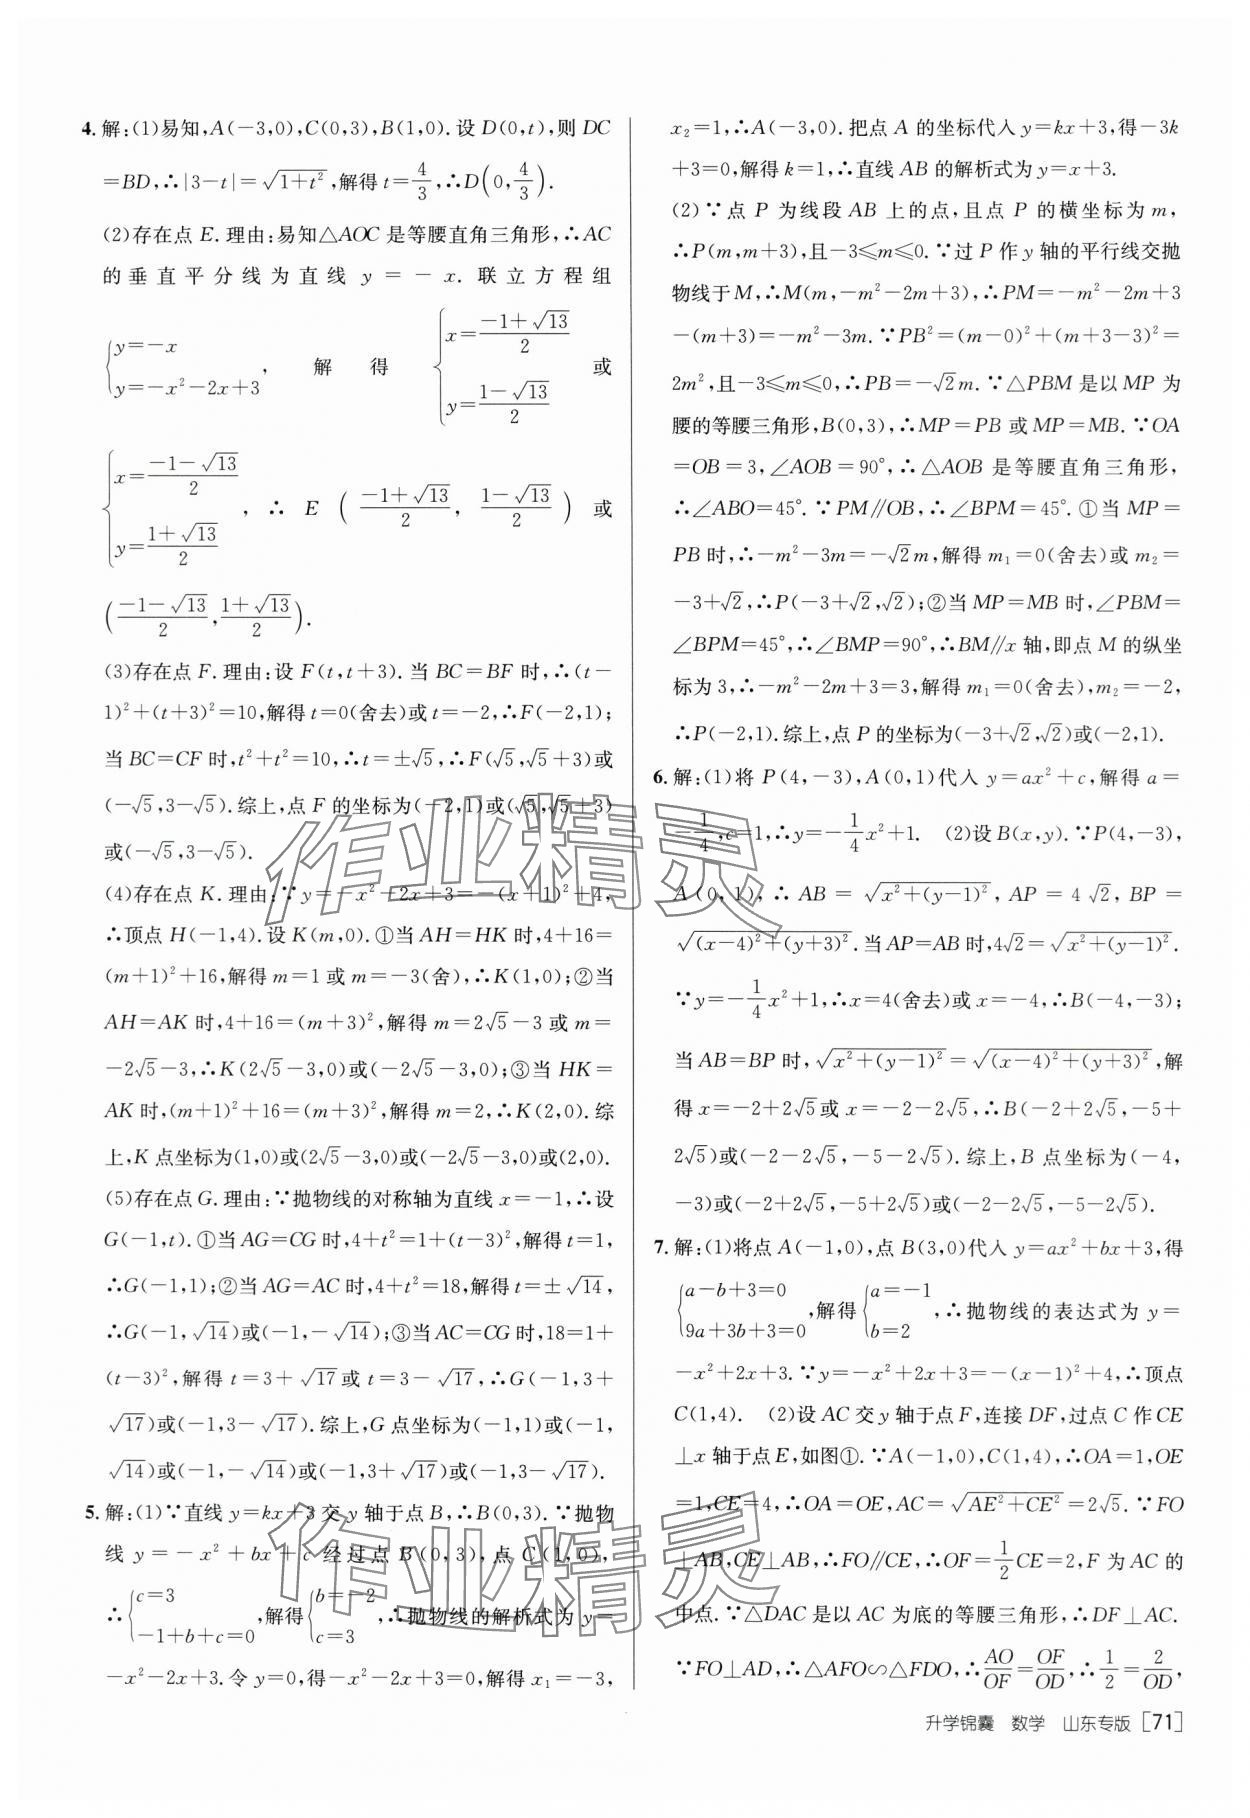 4. 解:(1)易知,A(-3,0),C(0,3),B(1,0).设D(0,t),则DC
=BD,∴|3-t|=√(1+t²),解得t=4/3,∴D(0,4/3).
(2)存在点E.理由:易知△AOC是等腰直角三角形,∴AC
的垂直平分线为直线y=-x.联立方程组
{y=-x
y=-x²-2x+3, 解得 {x=(-1+√13)/2
y=(1-√13)/2 或
{x=(-1-√13)/2
y=(1+√13)/2, ∴E((-1+√13)/2, (1-√13)/2)或
((-1-√13)/2,(1+√13)/2).
(3)存在点F.理由:设F(t,t+3).当BC=BF时,∴(t-
1)²+(t+3)²=10,解得t=0(舍去)或t=-2,∴F(-2,1);
当BC=CF时,t²+t²=10,∴t=±√5,∴F(√5,√5+3)或
(-√5,3-√5).综上,点F的坐标为(-2,1)或(√5,√5+3)
或(-√5,3-√5).
(4)存在点K.理由:∵y=-x²-2x+3=-(x+1)²+4,
∴顶点H(-1,4).设K(m,0).①当AH=HK时,4+16=
(m+1)²+16,解得m=1或m=-3(舍),∴K(1,0);②当
AH=AK时,4+16=(m+3)²,解得m=2√5-3或m=
-2√5-3,∴K(2√5-3,0)或(-2√5-3,0);③当HK=
AK时,(m+1)²+16=(m+3)²,解得m=2,∴K(2,0).综
上,K点坐标为(1,0)或(2√5-3,0)或(-2√5-3,0)或(2,0).
(5)存在点G.理由:∵抛物线的对称轴为直线x=-1,∴设
G(-1,t).①当AG=CG时,4+t²=1+(t-3)²,解得t=1,
∴G(-1,1);②当AG=AC时,4+t²=18,解得t=±√14,
∴G(-1,√14)或(-1,-√14);③当AC=CG时,18=1+
(t-3)²,解得t=3+√17或t=3-√17,∴G(-1,3+
√17)或(-1,3-√17).综上,G点坐标为(-1,1)或(-1,
√14)或(-1,-√14)或(-1,3+√17)或(-1,3-√17).
5. 解:(1)∵直线y=kx+3交y轴于点B,∴B(0,3).∵抛物
线y=-x²+bx+c经过点B(0,3),点C(1,0),
∴{c=3
-1+b+c=0,解得{b=-2
c=3,∴抛物线的解析式为y=
-x²-2x+3.令y=0,得-x²-2x+3=0,解得x₁=-3,
x₂=1,∴A(-3,0).把点A的坐标代入y=kx+3,得-3k
+3=0,解得k=1,∴直线AB的解析式为y=x+3.
(2)∵点P为线段AB上的点,且点P的横坐标为m,
∴P(m,m+3),且-3≤m≤0.∵过P作y轴的平行线交抛
物线于M,∴M(m,-m²-2m+3),∴PM=-m²-2m+3
-(m+3)=-m²-3m.∵PB²=(m-0)²+(m+3-3)²=
2m²,且-3≤m≤0,∴PB=-√2m.∵△PBM是以MP为
腰的等腰三角形,B(0,3),∴MP=PB或MP=MB.∵OA
=OB=3,∠AOB=90°,∴△AOB是等腰直角三角形,
∴∠ABO=45°.∵PM∥OB,∴∠BPM=45°.①当MP=
PB时,∴-m²-3m=-√2m,解得m₁=0(舍去)或m₂=
-3+√2,∴P(-3+√2,√2);②当MP=MB时,∠PBM=
∠BPM=45°,∴∠BMP=90°,∴BM∥x轴,即点M的纵坐
标为3,∴-m²-2m+3=3,解得m₁=0(舍去),m₂=-2,
∴P(-2,1).综上,点P的坐标为(-3+√2,√2)或(-2,1).
6. 解:(1)将P(4,-3),A(0,1)代入y=ax²+c,解得a=
-1/4,c=1,∴y=-1/4x²+1. (2)设B(x,y).∵P(4,-3),
A(0,1),∴AB=√(x²+(y-1)²),AP=4√2,BP=
√((x-4)²+(y+3)²).当AP=AB时,4√2=√(x²+(y-1)²).
∵y=-1/4x²+1,∴x=4(舍去)或x=-4,∴B(-4,-3);
当AB=BP时,√(x²+(y-1)²)=√((x-4)²+(y+3)²),解
得x=-2+2√5或x=-2-2√5,∴B(-2+2√5,-5+
2√5)或(-2-2√5,-5-2√5).综上,B点坐标为(-4,
-3)或(-2+2√5,-5+2√5)或(-2-2√5,-5-2√5).
7. 解:(1)将点A(-1,0),点B(3,0)代入y=ax²+bx+3,得
{a-b+3=0
9a+3b+3=0,解得{a=-1
b=2,∴抛物线的表达式为y=
-x²+2x+3.∵y=-x²+2x+3=-(x-1)²+4,∴顶点
C(1,4). (2)设AC交y轴于点F,连接DF,过点C作CE
⊥x轴于点E,如图①.∵A(-1,0),C(1,4),∴OA=1,OE
=1,CE=4,∴OA=OE,AC=√(AE²+CE²)=2√5.∵FO
⊥AB,CE⊥AB,∴FO∥CE,∴OF=1/2CE=2,F为AC的
中点.∵△DAC是以AC为底的等腰三角形,∴DF⊥AC.
∵FO⊥AD,∴△AFO∽△FDO,∴AO/OF=OF/OD,∴1/2=2/OD,
升学锦囊 数学 山东专版[71]
作业精灵
作业精灵